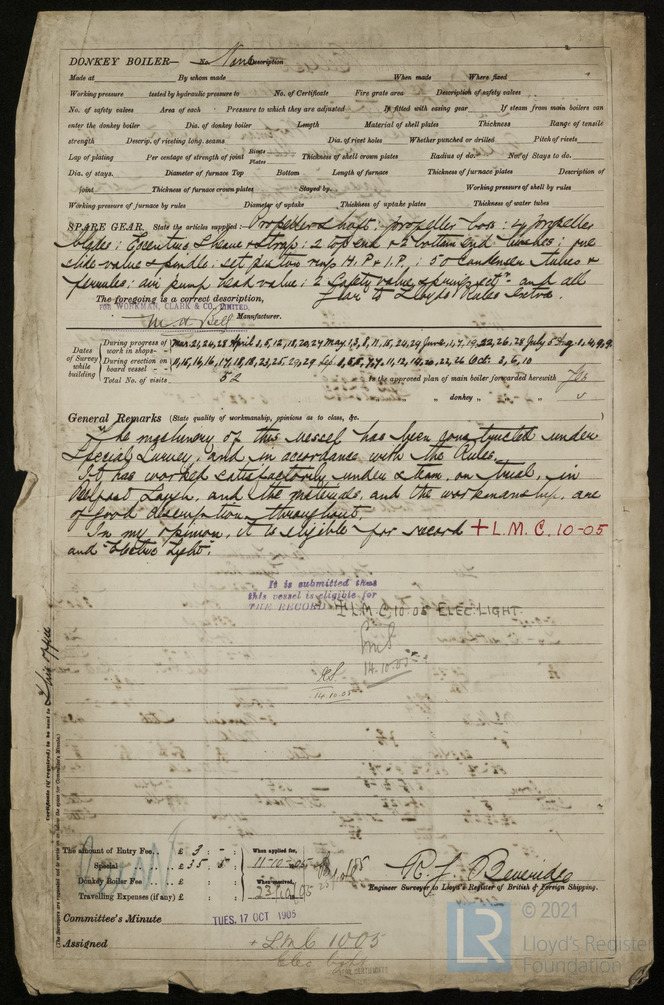 DONKEY BOILER— No. None Description
Made at By whom made When made Where fixed
Working pressure tested by hydraulic pressure to No. of Certificate Fire grate area Description of safety valves
No. of safety valves Area of each Pressure to which they are adjusted If fitted with easing gear If steam from main boilers can
enter the donkey boiler Dia. of donkey boiler Length Material of shell plates Thickness Range of tensile
strength Descrip. of riveting long. seams Dia. of rivet holes Whether punched or drilled Pitch of rivets
Lap of plating Per centage of strength of joint Rivets Plates Thickness of shell crown plates Radius of do. No. of Stays to do.
Dia. of stays. Diameter of furnace Top Bottom Length of furnace Thickness of furnace plates Description of
joint Thickness of furnace crown plates Stayed by. Working pressure of shell by rules
Working pressure of furnace by rules Diameter of uptake Thickness of uptake plates Thickness of water tubes
SPARE GEAR. State the articles supplied:— Propeller shaft: propeller boss: 4 propeller
blades: Eccentric sheave & strap: 2 top end & 2 bottom end bushes: one
slide valve & spindle: set piston rings H.P. & I.P.: 50 condenser tubes &
ferrules: air pump head valve: 2 safety valve springs and all
gear to Lloyds Rules Extra.
The foregoing is a correct description,
FOR WORKMAN, CLARK & CO., LIMITED.
Manufacturer.
Dates of Survey while building
During progress of work in shops - - Mar. 21, 24, 28 April 3, 5, 12, 18, 20, 27 May 1, 3, 8, 11, 15, 24, 29 June
During erection on board vessel - - Sep. Oct: 3, 6, 10
Total No. of visits 52 Is the approved plan of main boiler forwarded herewith Yes
" " " donkey " " "
General Remarks (State quality of workmanship, opinions as to class, &c.
The machinery of this vessel has been constructed under
Special Survey, and in accordance with the Rules.
It has worked satisfactorily under steam, on trial, in
Belfast Lough, and the materials, and the workmanship, are
of good description throughout.
In my opinion, it is eligible for record + L.M.C. 10-05
and "Electric Light".
It is submitted that
this vessel is eligible for
THE RECORD + L.M.C. 10.05 ELEC. LIGHT.
14.10.05
14.10.05
Certificate (if required) to be sent to This office
(The Surveyors are requested not to write on or below the space for Committee's Minute.)
The amount of Entry Fee. £ 3 : - : When applied for,
Special £ 35 : 5 : 11-10-05
Donkey Boiler Fee £ : : When received,
Travelling Expenses (if any) £ : : 23/10/05
R. J. Beveridge
Engineer Surveyor to Lloyd's Register of British & Foreign Shipping.
Committee's Minute TUES. 17 OCT 1905
Assigned + L.M.C 10.05
Elec light
© 2021
LR
Lloyd's Register
Foundation